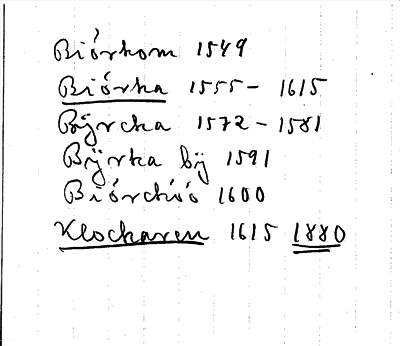 Biórkom 1549
Biórka 1555 - 1615
Bÿrcka 1572 - 1581
Bÿrka bÿ 1591
Biórckóó 1600
Klockaren 1615 1880